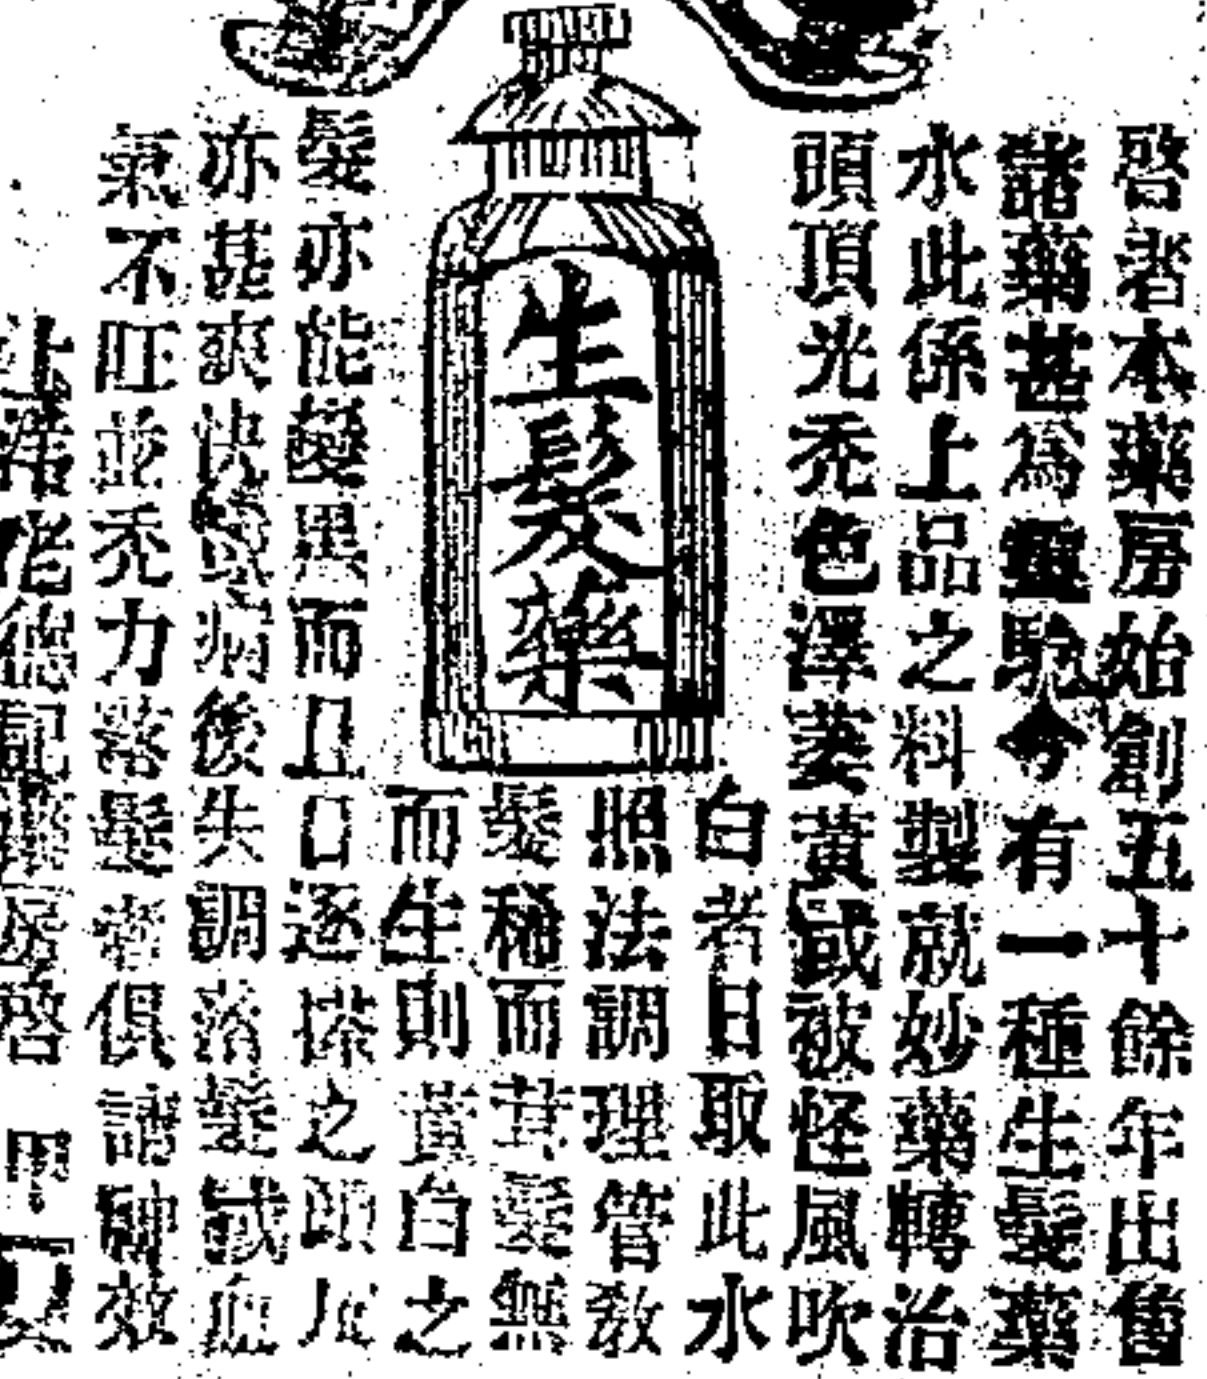 啓者本藥房始創五十餘年出售
諸藥甚為靈驗今有一種生髮藥
水此係上品之料製就妙藥轉治
頭頂光禿色澤萎黃或被怪風吹
白者日取此水
照法調理管敎
髮稀而其髮無
而生則黃白之
生髮藥
髮亦能變黑而且日逐搽之頭
亦甚爽快病後失調落髮或血
氣不旺並禿力髮者俱請神效
啓